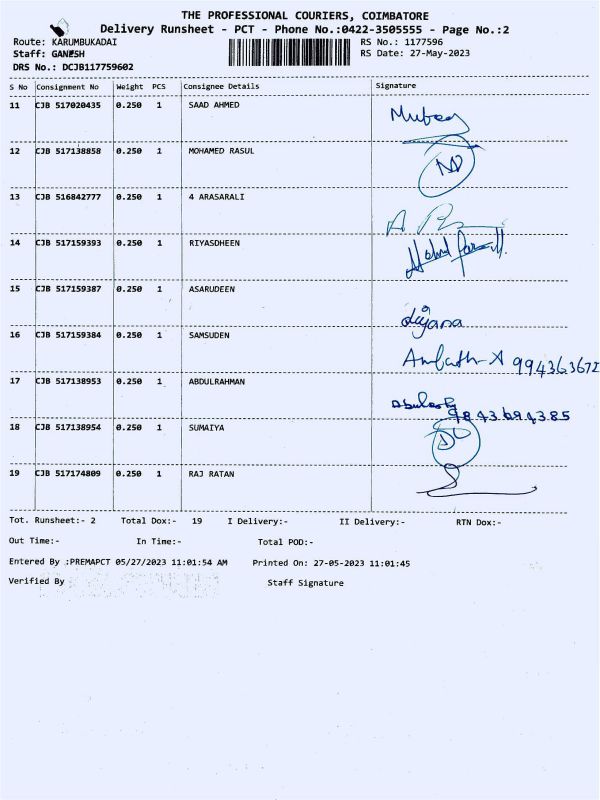 THE PROFESSIONAL COURIERS, COIMBATORE
Delivery Runsheet - PCT - Phone No.:0422-3505555 - Page No.:2
Route: KARUMBUKADAI RS No.: 1177596
Staff: GANESH RS Date: 27-May-2023
DRS No.: DCJB117759602
S No Consignment No Weight PCS Consignee Details Signature
11 CJB 517020435 0.250 1 SAAD AHMED
12 CJB 517138858 0.250 1 MOHAMED RASUL
13 CJB 516842777 0.250 1 4 ARASARALI
14 CJB 517159393 0.250 1 RIYASDHEEN
15 CJB 517159387 0.250 1 ASARUDEEN
diyana
16 CJB 517159384 0.250 1 SAMSUDEN
17 CJB 517138953 0.250 1 ABDULRAHMAN
9843694385
18 CJB 517138954 0.250 1 SUMAIYA
19 CJB 517174809 0.250 1 RAJ RATAN
Tot. Runsheet:- 2 Total Dox:- 19 I Delivery:- II Delivery:- RTN Dox:-
Out Time:- In Time:- Total POD:-
Entered By :PREMAPCT 05/27/2023 11:01:54 AM Printed On: 27-05-2023 11:01:45
Verified By Staff Signature